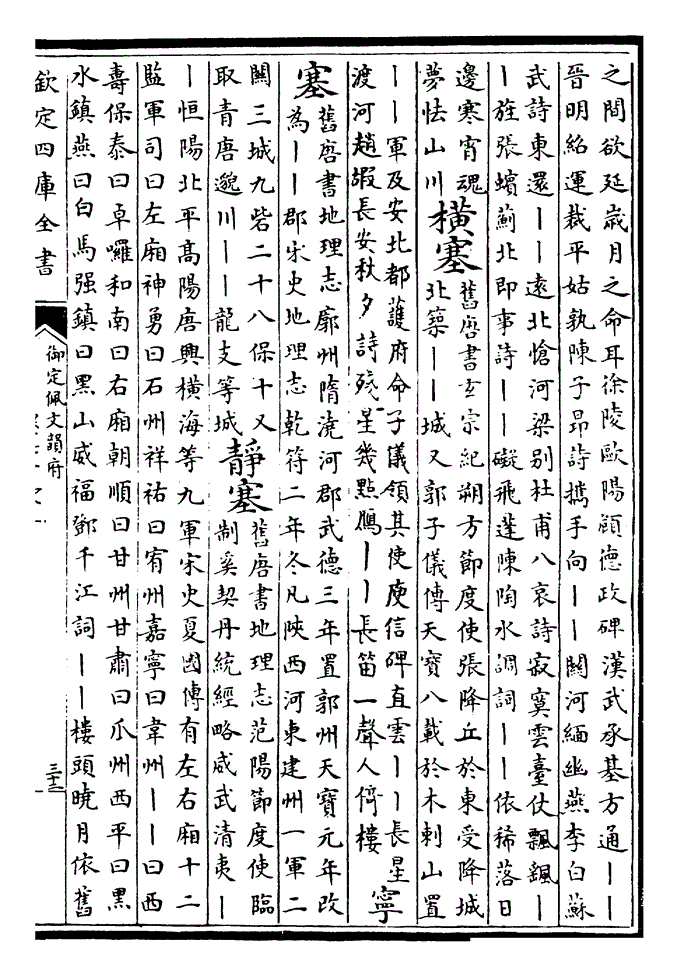 之間欲延歲月之命耳徐陵歐陽頠德政碑漢武承基方通丨丨
晉明紹運裁平姑孰陳子昂詩攜手向丨丨關河緬幽燕李白蘇
武詩東還丨丨遠北愴河梁别杜甫八哀詩寂寞雲臺仗飄飖丨
丨旌張蠙薊北即事詩丨丨礙飛蓬陳陶水調詞丨丨依稀落日
邊寒宵魂
夢怯山川
橫塞
舊唐書玄宗紀朔方節度使張降丘於東受降城
北築丨丨城又郭子儀傳天寶八載於木剌山置
丨丨軍及安北都護府命子儀領其使庾信碑直雲丨丨長星
渡河趙嘏長安秋夕詩殘星幾點鴈丨丨長笛一聲人倚樓
寧
塞
舊唐書地理志廓州隋澆河郡武德三年置郭州天寶元年改
為丨丨郡宋史地理志乾符二年冬凡陝西河東建州一軍二
關三城九砦二十八保十又
取青唐邈川丨丨龍支等城
靜塞
舊唐書地理志范陽節度使臨
制奚契丹統經略威武清夷丨
丨恒陽北平高陽唐興橫海等九軍宋史夏國傳有左右廂十二
監軍司曰左廂神勇曰石州祥祐曰宥州嘉寧曰韋州丨丨曰西
壽保泰曰卓囉和南曰右廂朝順曰甘州甘肅曰瓜州西平曰黑
水鎮燕曰白馬强鎮曰黑山威福鄧千江詞丨丨樓頭曉月依舊
欽定四庫全書
御定佩文韻府
三十二